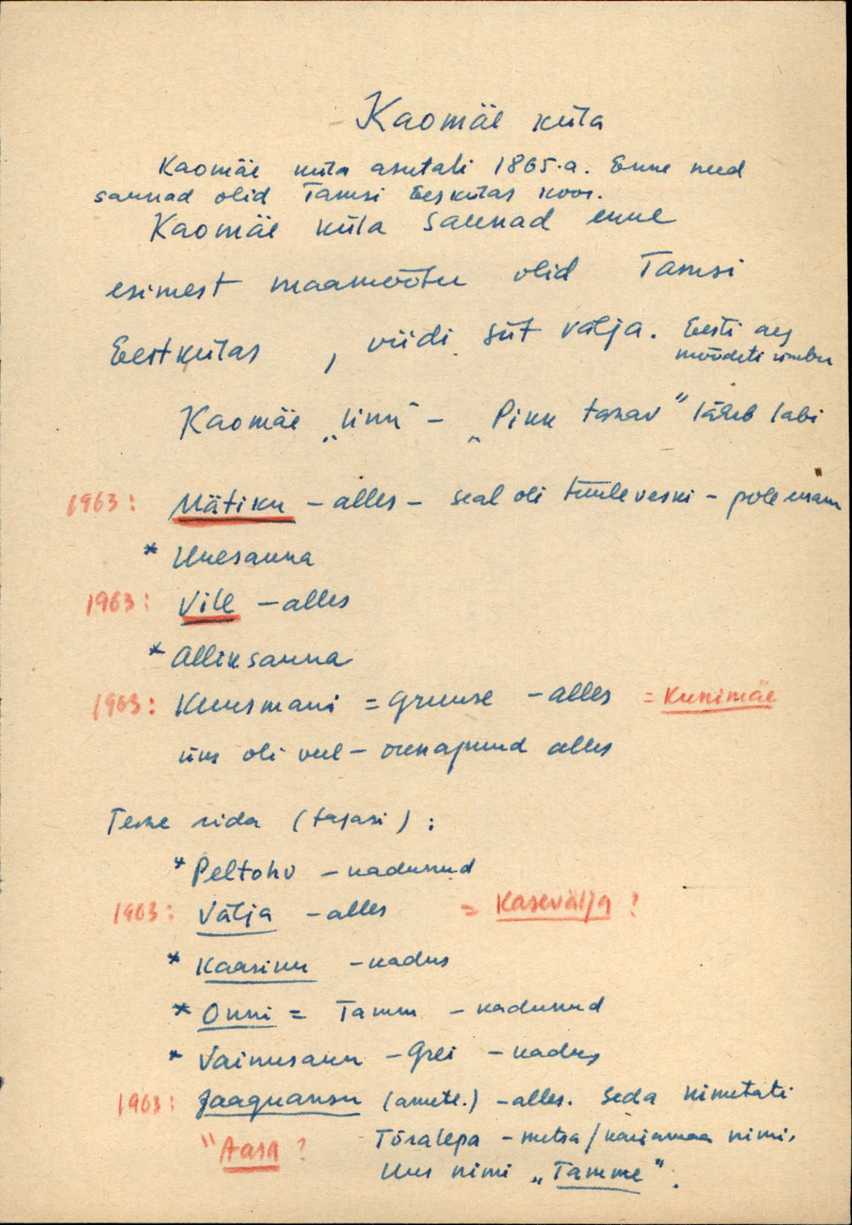 Kaomäe küla
Kaomäe küla asutati 1865.a. Enne need
saunad olid Tamsi Eeskülas koos.
Kaomäe küla saunad enne
esimest maamõõtu olid Tamsi
Eestkülas, viidi siit välja. Eesti aeg
mõõdeti
Kaomäe „linn" – „Pikk tänav" läheb läbi
1963: Mätiku – alles – seal oli tuuleveski – pole enam
* Uuesauna
1963: Vile – alles
* Alliksauna
1963: Kuusmani = Gruuse – alles = Kunimäe
üks oli veel – õunapuud alles
Teine rida (tagasi):
* Peltohv – kadunud
1963: Välja – alles = Kasevälja?
* Kaasiku – kadus
* Onni = Tamm – kadunud
* Vainusaun – Grei – kadus
1963: Jaaguansu (ametl.) – alles. Seda nimetati
"Aasa? Tõralepa – metsa/karjamaa nimi.
Uus nimi „Tamme".